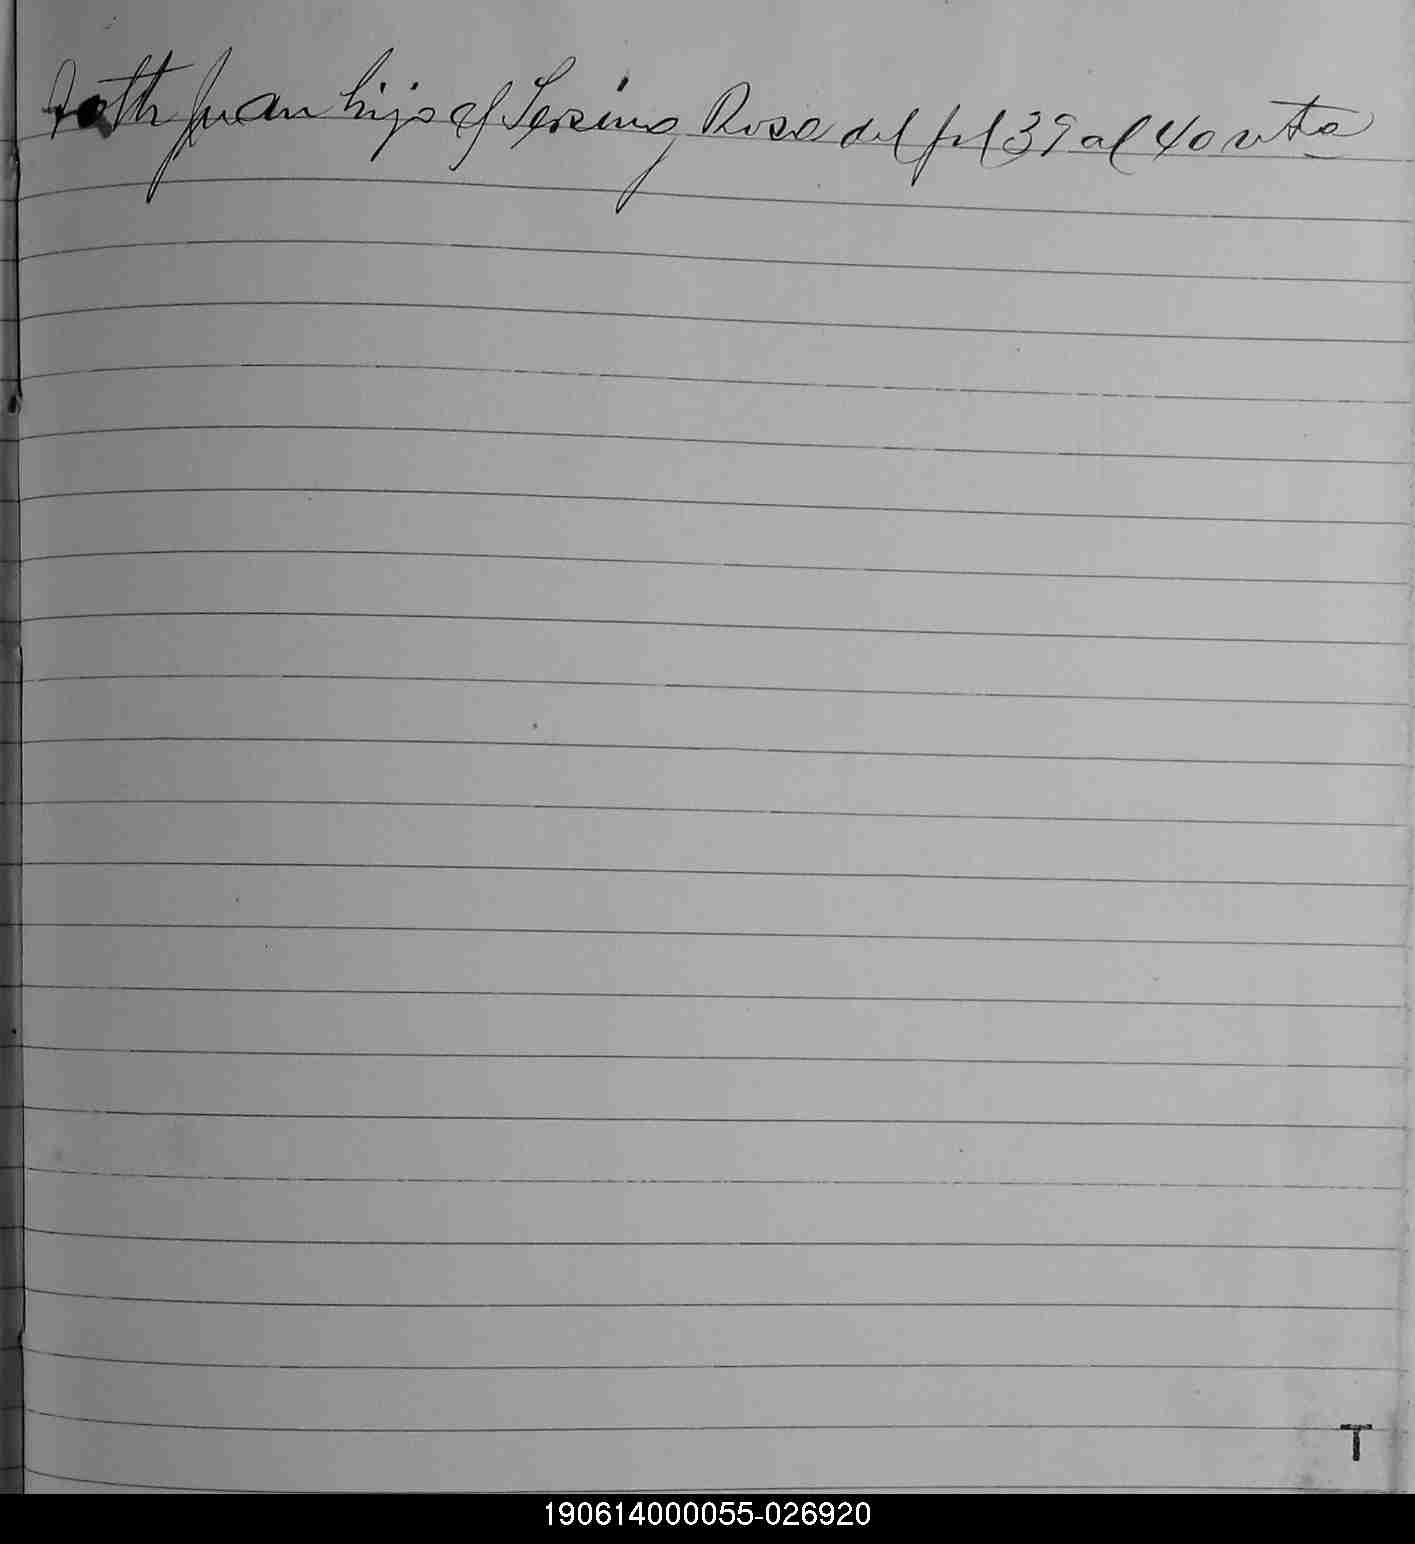 Toth Juan hijo of Gersino Rosa del fol 39 al 40 vta
T
190614000055-026920